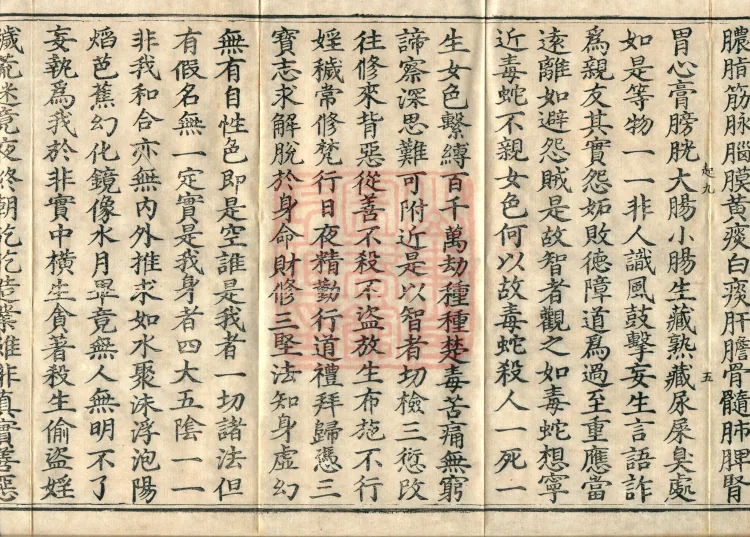 膿脂筋脉腦膜黄痰白痰肝膽骨髓肺脾腎
胃心膏膀胱大腸小腸生藏熟藏尿屎臭處
如是等物一一非人識風鼓擊妄生言語詐
爲親友其實怨妬敗德障道爲過至重應當
遠離如避怨賊是故智者觀之如毒蛇想寧
近毒蛇不親女色何以故毒蛇殺人一死一
生女色繫縛百千萬劫種種楚毒苦痛無窮
諦察深思難可附近是以智者切檢三愆改
往修來背惡從善不殺不盗放生布施不行
婬穢常修梵行日夜精勤行道禮拜歸憑三
寶志求解脫於身命財修三堅法知身虛幻
無有自性色即是空誰是我者一切諸法但
有假名無一定實是我身者四大五陰一一
非我和合亦無内外推求如水聚沫浮泡陽
熖芭蕉幻化鏡像水月畢竟無人無明不了
妄執爲我於非實中横生貪著殺生偷盗婬
穢荒迷竟夜終朝矻矻造業雖非真實善惡
起九
五